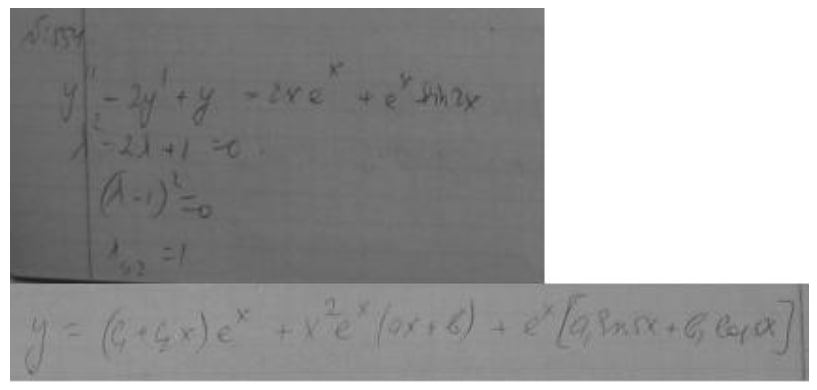 y'' - 2y' + y = 2xe^x + e^x sin2x
λ² - 2λ + 1 = 0.
(λ - 1)² = 0
λ₁,₂ = 1
y = (C₁ + C₂x)e^x + x²e^x(ax + b) + e^x[a₁ sin 5x + b₁ cos